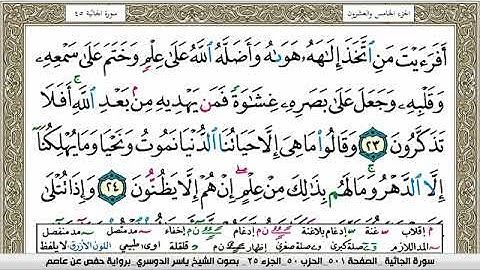 الجزء الخامس والعشرون
سورة الجاثية ٤٥
أَفَرَءَيْتَ مَنِ ٱتَّخَذَ إِلَٰهَهُۥ هَوَىٰهُ وَأَضَلَّهُ ٱللَّهُ عَلَىٰ عِلْمٍۢ وَخَتَمَ عَلَىٰ سَمْعِهِۦ
وَقَلْبِهِۦ وَجَعَلَ عَلَىٰ بَصَرِهِۦ غِشَٰوَةً فَمَن يَهْدِيهِ مِنۢ بَعْدِ ٱللَّهِ ۚ أَفَلَا
تَذَكَّرُونَ ٢٣ وَقَالُوا۟ مَا هِىَ إِلَّا حَيَاتُنَا ٱلدُّنْيَا نَمُوتُ وَنَحْيَا وَمَا يُهْلِكُنَآ
إِلَّا ٱلدَّهْرُ ۚ وَمَا لَهُم بِذَٰلِكَ مِنْ عِلْمٍ ۖ إِنْ هُمْ إِلَّا يَظُنُّونَ ٢٤ وَإِذَا تُتْلَىٰ
م إقلاب غنة إدغام بلاغنة ن م إدغام إخفاء مد متصل مد منفصل
المد اللازم صلة كبرى صلة صغرى ن م إظهار قلقلة اوى، طبيعي اللون الأزرق لا يلفظ
سورة الجاثية _الصفحة ٥٠١_ الحزب ٥٠_ الجزء ٢٥_ بصوت الشيخ ياسر الدوسري _برواية حفص عن عاصم